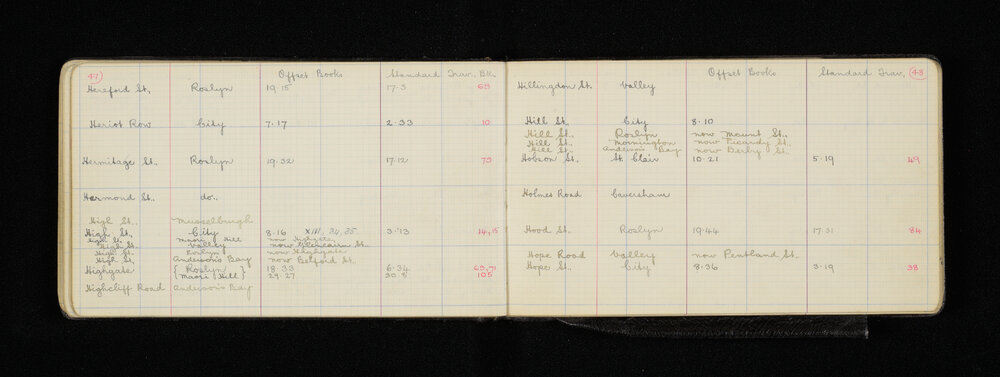 47 Offset Books Standard Trav. Bk.
Hereford St. Roslyn 19.15 17.3 69
Heriot Row City 7.17 2.33 10
Hermitage St. Roslyn 19.32 17.12 79
Hermond St. do.
High St. Musselburgh
High St. City 8.16 XIII, 34, 35 3.73 14,15
High St. Maori Hill now Highgate
High St. Valley now Glencairn St.
High St. Roslyn now Highgate
High St. Anderson's Bay now Belford St.
Highgate { Roslyn } 18.33 6.34 69,71
{ Maori Hill } 29.27 105
Highcliff Road Anderson's Bay
Offset Books Standard Trav. 48
Hillingdon St. Valley
Hill St. City 8.10
Hill St. Roslyn now Mount St.
Hill St. Mornington now Picardy St.
Hill St. Anderson's Bay now Derby St.
Hobson St. St. Clair 10.21 5.19 49
Holmes Road Caversham
Hood St. Roslyn 19.44 17.31 84
Hope Road Valley now Pentland St.
Hope St. City 8.36 3.19 38